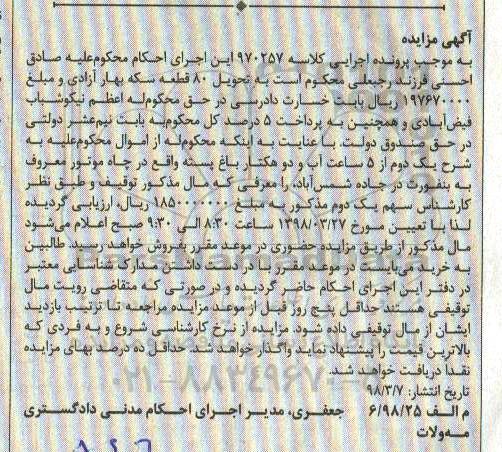 آگهی مزایده
به موجب پرونده اجرایی کلاسه ۹۷۰۲۵۷ این اجرای احکام محکوم‌علیه صادق
احسی فرزند رجبعلی محکوم است به تحویل ۸۰ قطعه سکه بهار آزادی و مبلغ
۱۹۷۶۷۰۰۰۰ ریال بابت خسارت دادرسی در حق محکوم‌له اعظم نیکوشباب
فیض‌آبادی و همچنین به پرداخت ۵ درصد کل محکوم‌به بابت نیم‌عشر دولتی
در حق صندوق دولت. با عنایت به اینکه محکوم‌له از اموال محکوم‌علیه به
شرح یک دوم از ۵ ساعت آب و دو هکتار باغ پسته واقع در چاه موتور معروف
به بنفورت در جاده شمس‌آباد، را معرفی که مال مذکور توقیف و طبق نظر
کارشناس سهم یک دوم مذکور به مبلغ ۱۸۵۰۰۰۰۰۰۰ ریال، ارزیابی گردیده
لذا با تعیین مورخ ۱۳۹۸/۰۳/۲۷ ساعت ۸:۳۰ الی ۹:۳۰ صبح اعلام می‌شود
مال مذکور از طریق مزایده حضوری در موعد مقرر بفروش خواهد رسید. طالبین
به خرید می‌بایست در موعد مقرر با در دست داشتن مدارک شناسایی معتبر
در دفتر این اجرای احکام حاضر گردیده و در صورتی که متقاضی رویت مال
توقیفی هستند حداقل پنج روز قبل از موعد مزایده مراجعه تا ترتیب بازدید
ایشان از مال توقیفی داده شود. مزایده از نرخ کارشناسی شروع و به فردی که
بالاترین قیمت را پیشنهاد نماید واگذار خواهد شد. حداقل ده درصد بهای مزایده
نقدا دریافت خواهد شد.
تاریخ انتشار: ۹۸/۳/۷
م الف ۶/۹۸/۲۵ جعفری، مدیر اجرای احکام مدنی دادگستری
مه‌ولات
۰۲۱-۸۸۳۴۹۶۷۰